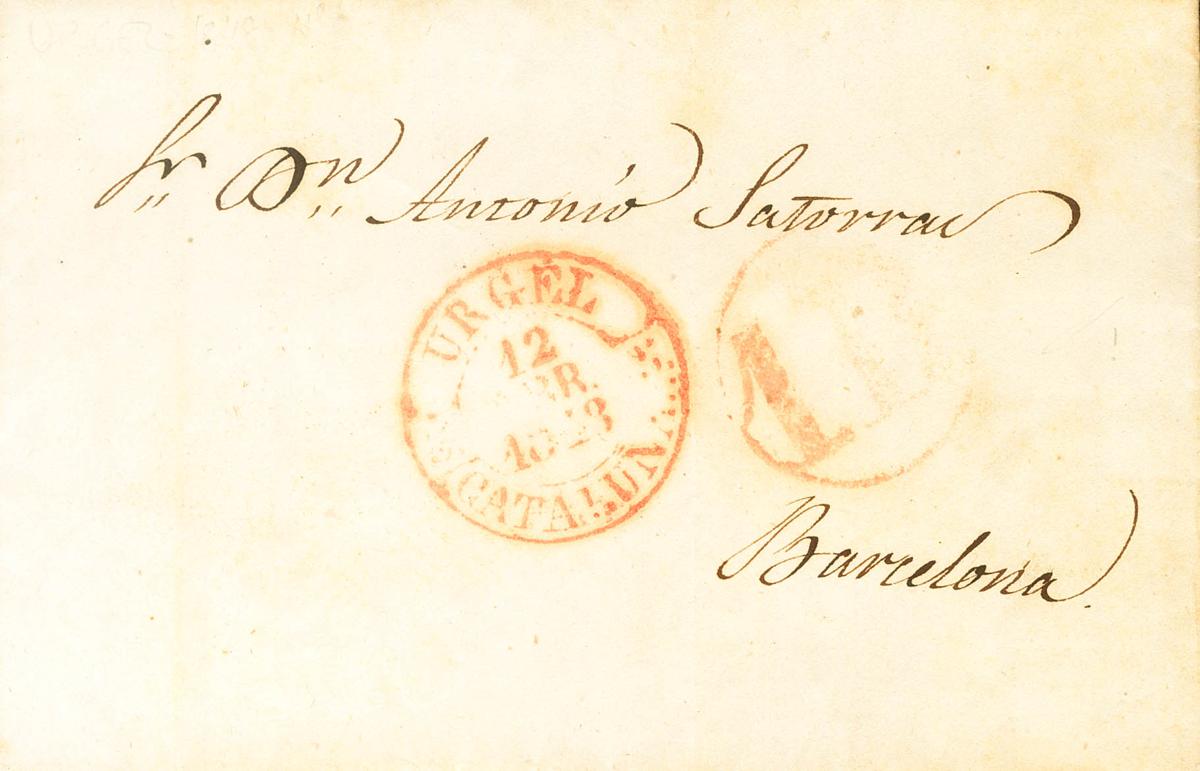 Sr. Dn. Antonio Satorras
URGEL
12
1848
CATALUÑA
Barcelona.